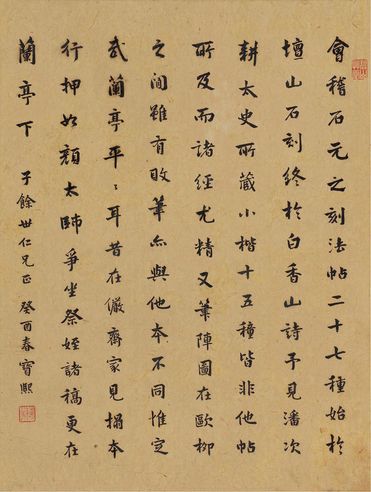 會稽石元之刻法帖二十七種始於
壇山石刻終於白香山詩予見潘次
耕太史所藏小楷十五種皆非他帖
所及而諸經尤精又筆陣圖在歐柳
之間雖有敗筆亦與他本不同惟定
武蘭亭平〻耳昔在儼齋家見搨本
行押如顏太師爭坐祭姪諸稿更在
蘭亭下 子餘世仁兄正 癸酉春寶熙